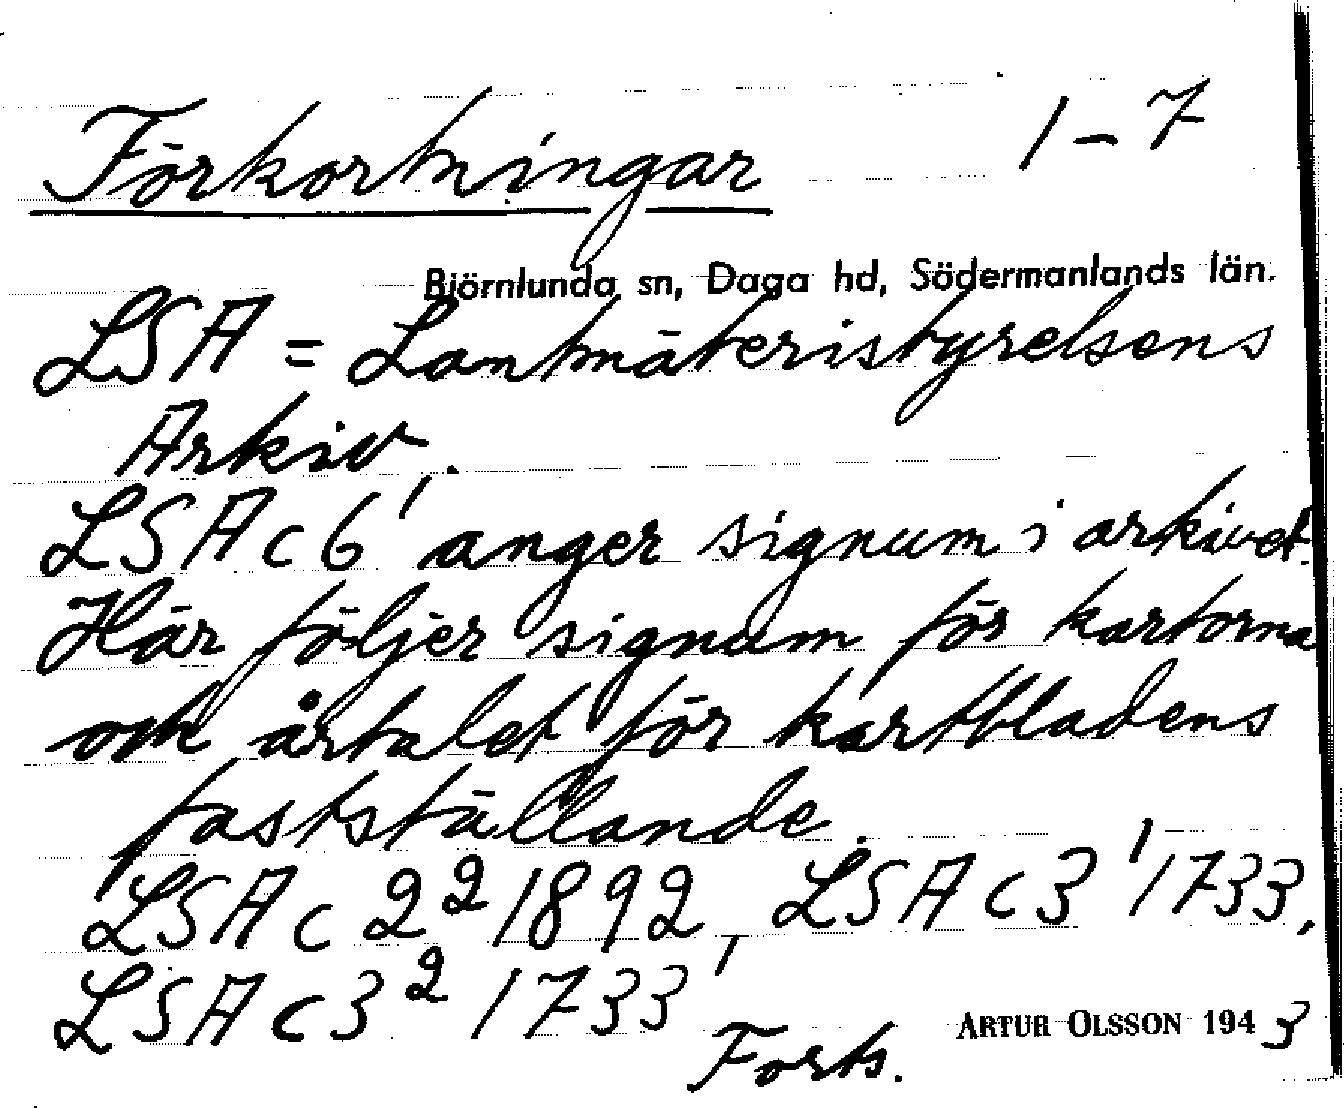 Förkortningar 1-7
Björnlunda sn, Daga hd, Södermanlands län.
LSA = Lantmäteristyrelsens
Arkiv.
LSA c 6¹ anger signum i arkivet.
Här följer signum för kartorna
och årtalet för kartbladens
fastställande.
LSA c 2² 1892, LSA c 3¹ 1733,
LSA c 3² 1733,
Forts. ARTUR OLSSON 1943